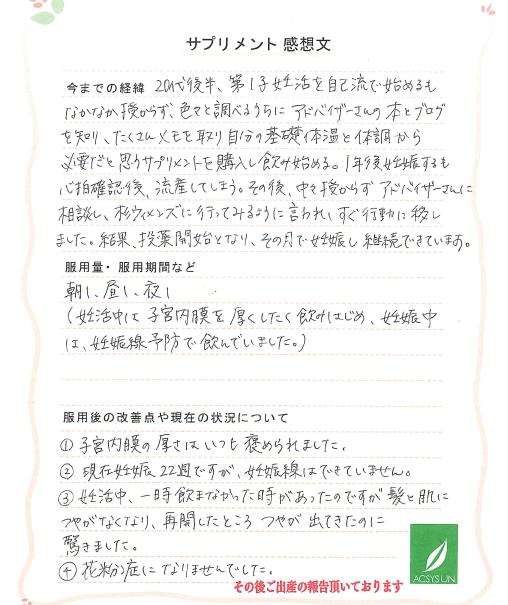 サプリメント 感想文
今までの経緯 20代後半、第1子妊活を自己流で始めるも
なかなか授からず、色々と調べるうちに アドバイザーさんの本とブログ
を知り、たくさんメモを取り自分の基礎体温と体調から
必要だと思うサプリメントを購入し飲み始める。1年後妊娠するも
心拍確認後、流産してしまう。その後、中々授からず アドバイザーさんに
相談し、杉ウィメンズに行ってみるように言われ、すぐ行動に移し
ました。結果、投薬開始となり、その月で妊娠し継続できています。
服用量・服用期間など
朝1、昼1、夜1
(妊活中は子宮内膜を厚くしたく飲みはじめ、妊娠中
は、妊娠線予防で飲んでいました。)
服用後の改善点や現在の状況について
① 子宮内膜の厚さはいつも褒められました。
② 現在妊娠22週ですが、妊娠線はできていません。
③ 妊活中、一時飲まなかった時があったのですが髪と肌に
つやがなくなり、再開したところ つやが出てきたのに
驚きました。
④ 花粉症になりませんでした。
その後ご出産の報告頂いております
ACSYS UN